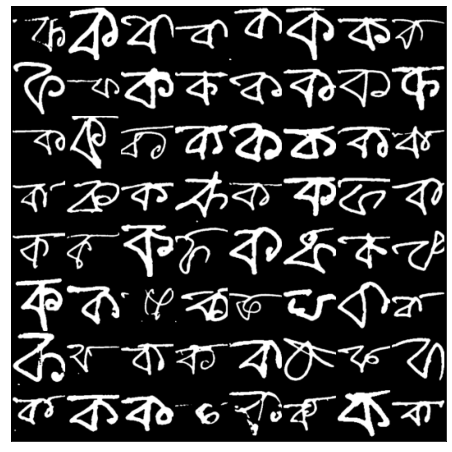 ক ক ক ক ক ক ক ক
ক ক ক ক ক ক ক ক
ক ক ক ক ক ক ক ক
ক ক ক ক ক ক ক ক
ক ক ক ক ক ক ক
ক ক ক ক ক ক
ক ক ক ক ক ক ক ক
ক ক ক ক ক ক ক